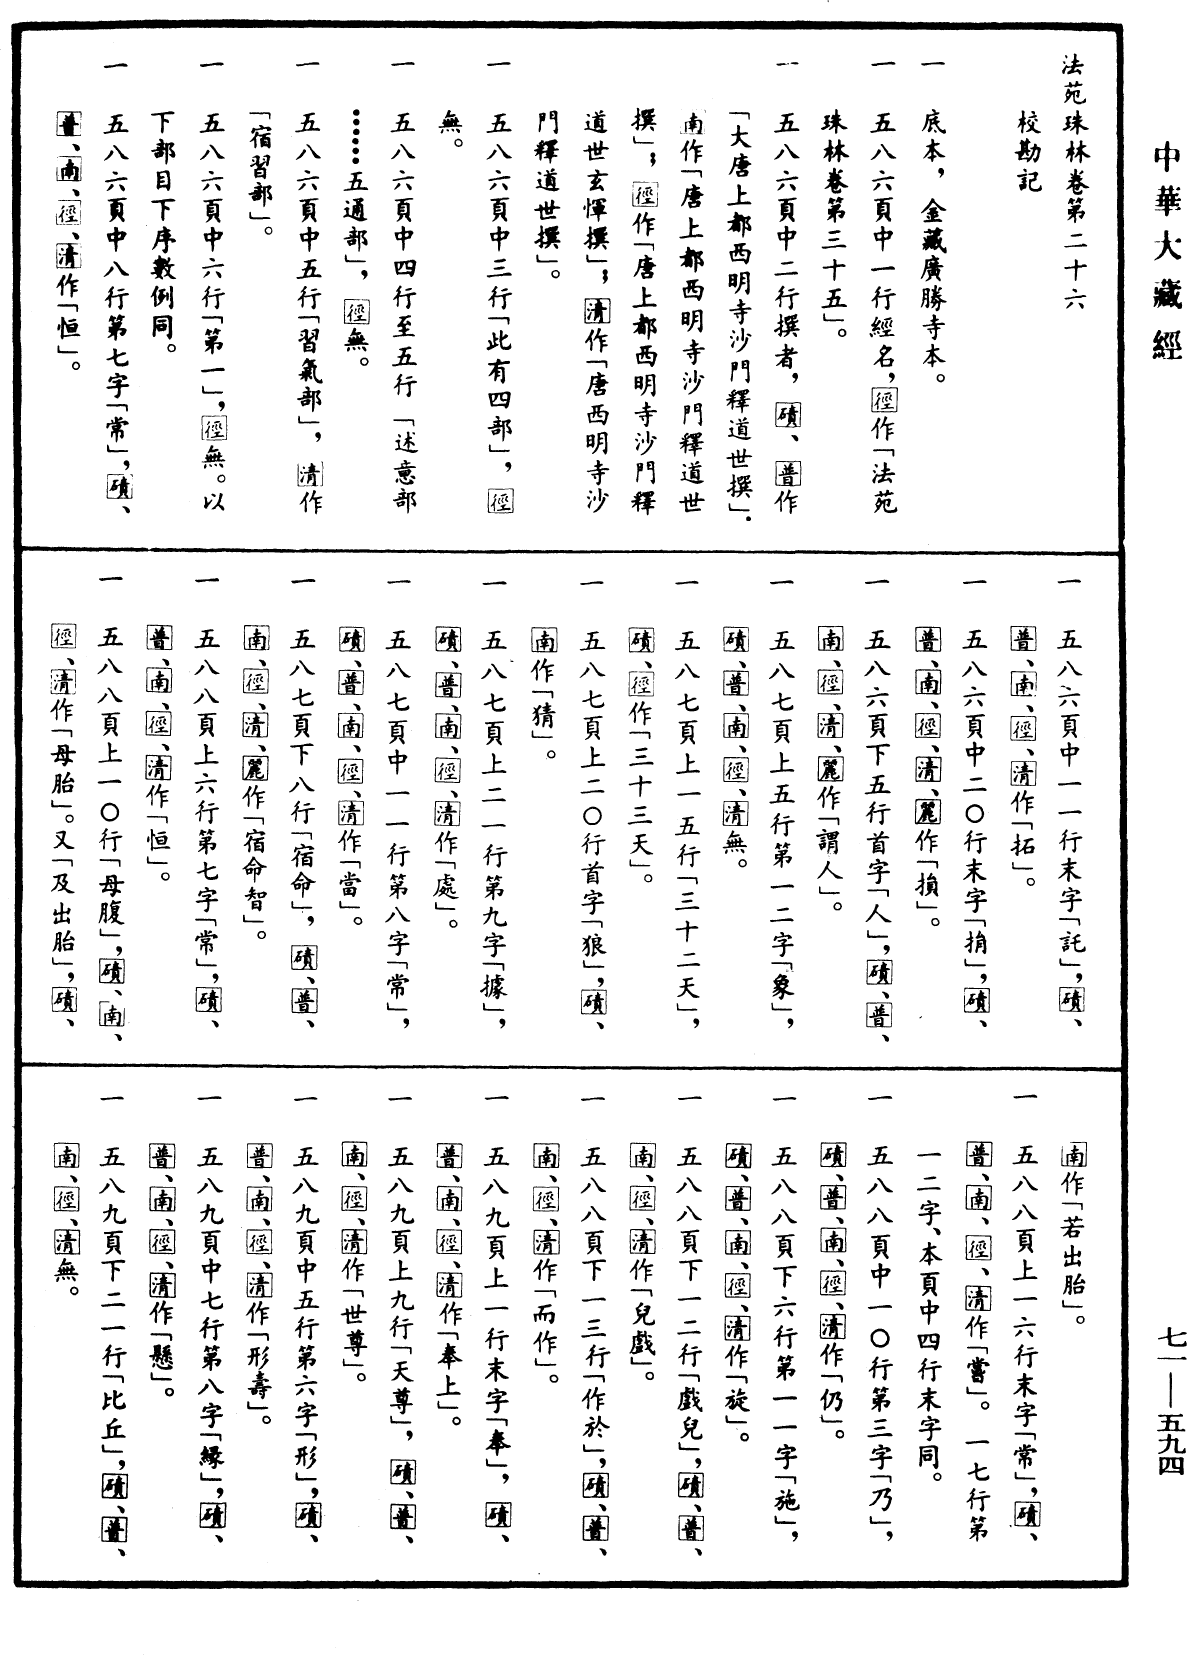 中華大藏經
法苑珠林卷第二十六
校勘記
一 底本，金藏廣勝寺本。
一 五八六頁中一行經名，徑作「法苑
珠林卷第三十五」。
一 五八六頁中二行撰者，磧、普作
「大唐上都西明寺沙門釋道世撰」．
南作「唐上都西明寺沙門釋道世
撰」；徑作「唐上都西明寺沙門釋
道世玄惲撰」；清作「唐西明寺沙
門釋道世撰」。
一 五八六頁中三行「此有四部」，徑
無。
一 五八六頁中四行至五行「述意部
……五通部」，徑無。
一 五八六頁中五行「習氣部」，清作
「宿習部」。
一 五八六頁中六行「第一」，徑無。以
下部目下序數例同。
一 五八六頁中八行第七字「常」，磧、
普、南、徑、清作「恒」。
一 五八六頁中一一行末字「託」，磧、
普、南、徑、清作「拓」。
一 五八六頁中二〇行末字「捎」，磧、
普、南、徑、清、麗作「損」。
一 五八六頁下五行首字「人」，磧、普、
南、徑、清、麗作「謂人」。
一 五八七頁上五行第一二字「象」，
磧、普、南、徑、清無。
一 五八七頁上一五行「三十二天」，
磧、徑作「三十三天」。
一 五八七頁上二〇行首字「狼」，磧、
南作「猜」。
一 五八七頁上二一行第九字「據」，
磧、普、南、徑、清作「處」。
一 五八七頁中一一行第八字「常」，
磧、普、南、徑、清作「當」。
一 五八七頁下八行「宿命」，磧、普、
南、徑、清、麗作「宿命智」。
一 五八八頁上六行第七字「常」，磧、
普、南、徑、清作「恒」。
一 五八八頁上一〇行「母腹」，磧、南、
徑、清作「母胎」。又「及出胎」，磧、
南作「若出胎」。
一 五八八頁上一六行末字「常」，磧、
普、南、徑、清作「嘗」。一七行第
一二字、本頁中四行末字同。
一 五八八頁中一〇行第三字「乃」，
磧、普、南、徑、清作「仍」。
一 五八八頁下六行第一一字「施」，
磧、普、南、徑、清作「旋」。
一 五八八頁下一二行「戲兒」，磧、普、
南、徑、清作「兒戲」。
一 五八八頁下一三行「作於」，磧、普、
南、徑、清作「而作」。
一 五八九頁上一行末字「奉」，磧、
普、南、徑、清作「奉上」。
一 五八九頁上九行「天尊」，磧、普、
南、徑、清作「世尊」。
一 五八九頁中五行第六字「形」，磧、
普、南、徑、清作「形壽」。
一 五八九頁中七行第八字「緣」，磧、
普、南、徑、清作「懸」。
一 五八九頁下二一行「比丘」，磧、普、
南、徑、清無。
七一——五九四